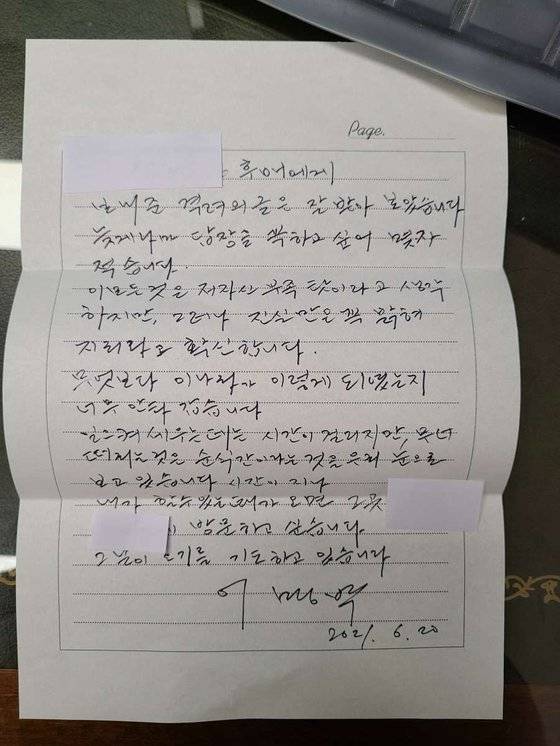 Page.
후배에게
보내준 격려의 글은 잘 받아 보았습니다
늦게나마 답장을 꼭하고 싶어 몇자
적습니다.
이모든것은 저자신 부족 탓이라고 생각
하지만, 그러나 진실만은 꼭 밝혀
지리라고 확신합니다.
무엇보다 이나라가 이렇게 되였는지
너무 안타 갑습니다
일으켜 세우는데는 시간이 걸리지만, 무너
떠리는것은 순식간이라는것을 우리 눈으로
보고 있습니다 시간이 지나
내가 할수있는때가 오면 그곳
방문하고 싶습니다
그날이 오기를 기도하고 있습니다
이 명박
2021. 6. 20